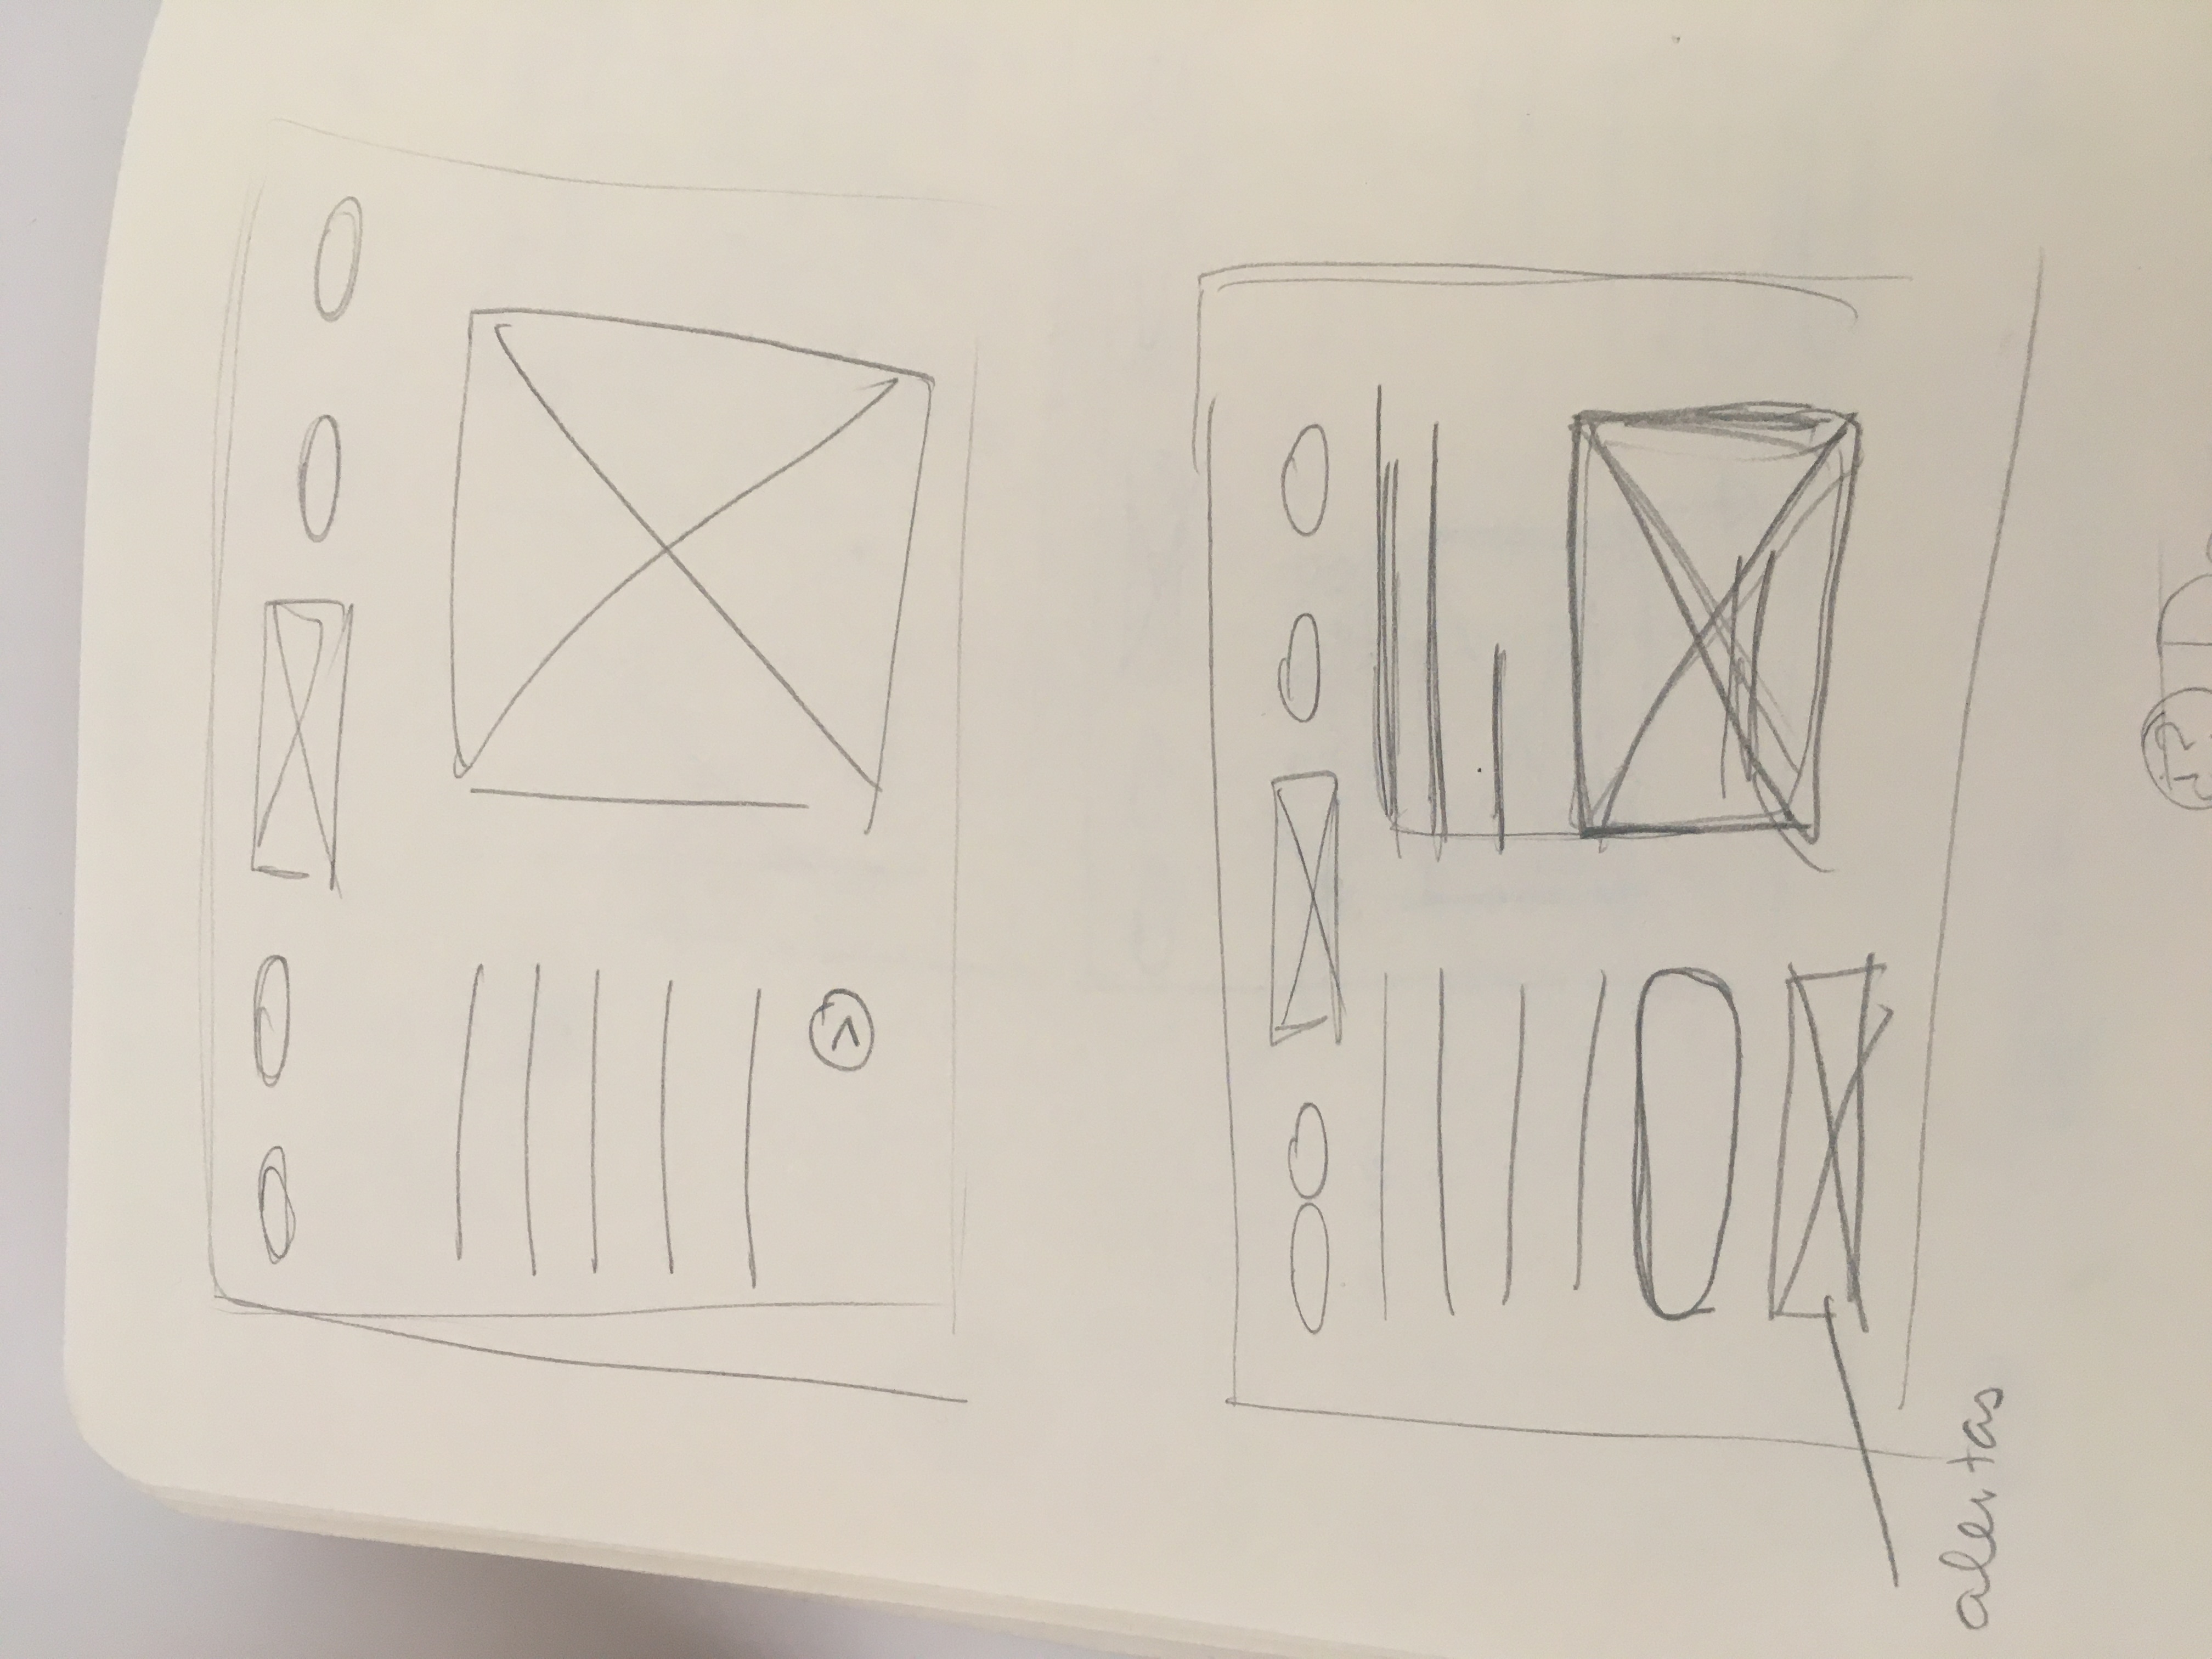 >
alertas